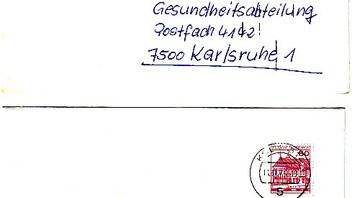 Gesundheitsabteilung
Postfach 4142!
7500 Karlsruhe 1
80
5